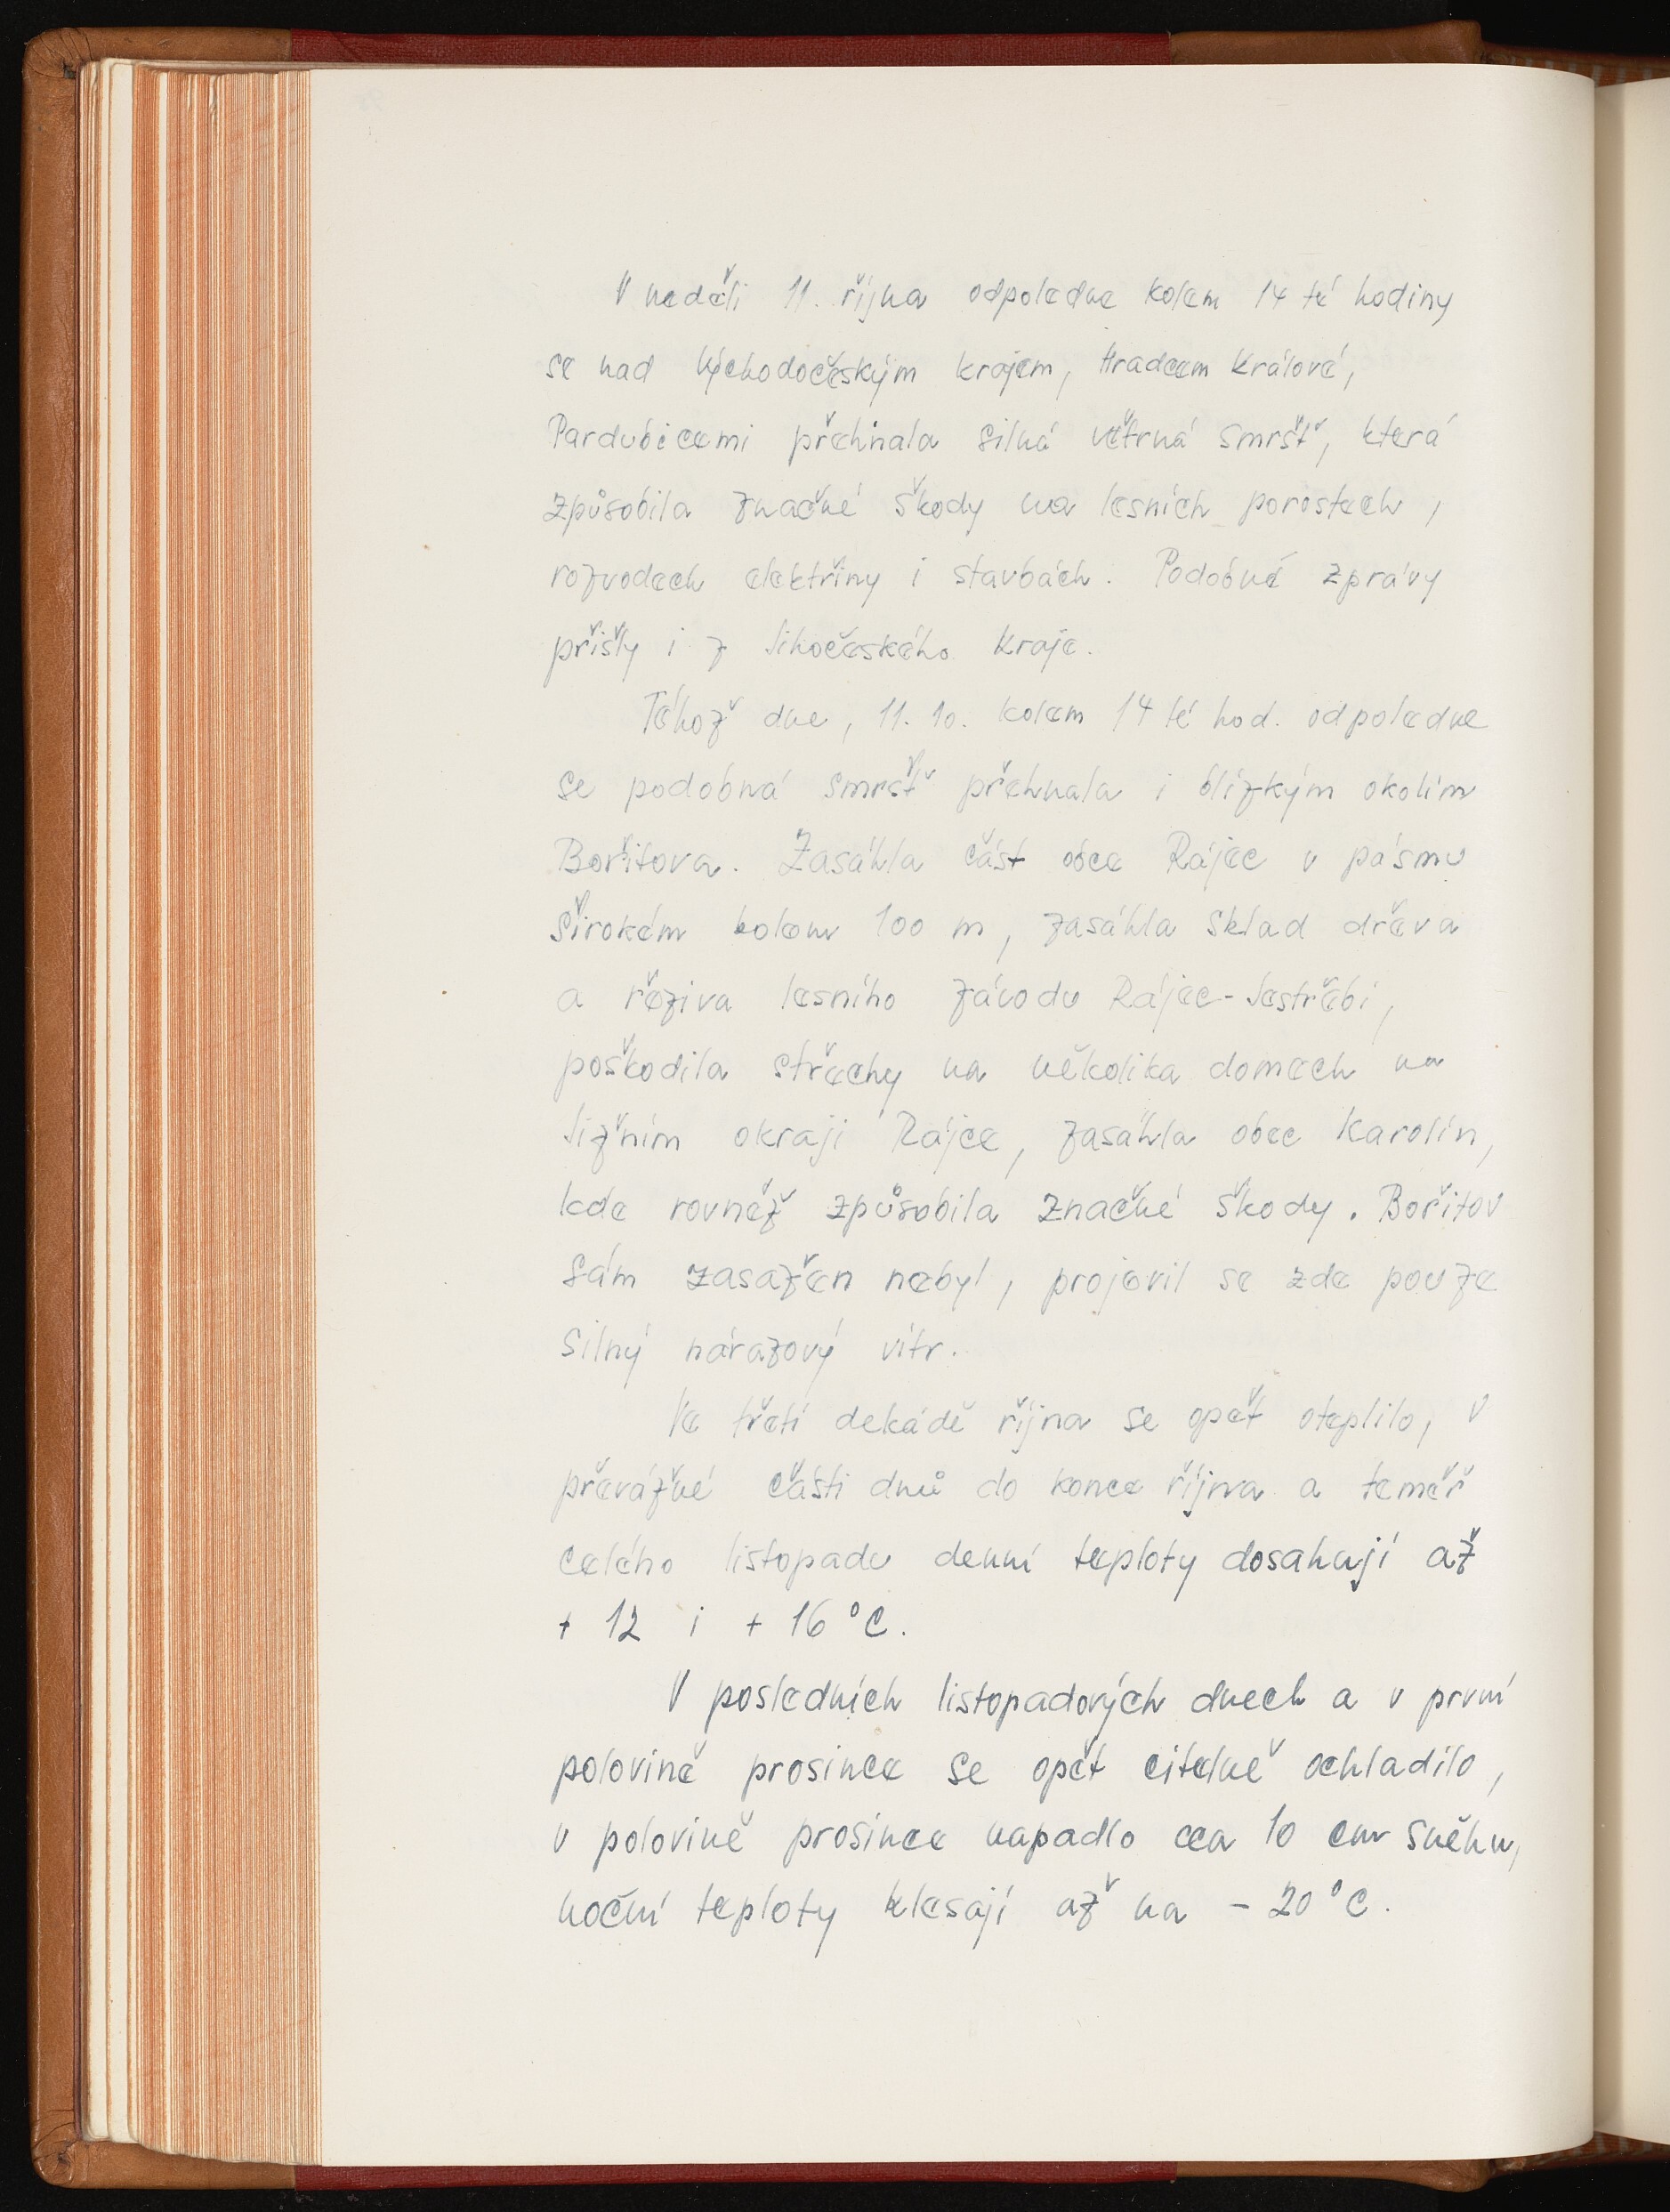 V neděli 11. října odpoledne kolem 14 té hodiny
se nad Východočeským krajem, Hradcem Králové,
Pardubicemi přehnala silná větrná smršť, která
způsobila značné škody na lesních porostech,
rozvodech elektřiny i stavbách. Podobné zprávy
přišly i z Jihočeského kraje.
Téhož dne, 11. 10. kolem 14 té hod. odpoledne
se podobná smršť přehnala i blízkým okolím
Bořitova. Zasáhla část obce Rájec v pásmu
širokém kolem 100 m, zasáhla sklad dřeva
a řeziva lesního závodu Rájec-Jestřebí,
poškodila střechy na několika domech na
jižním okraji Rájce, zasáhla obec Karolín,
kde rovněž způsobila značné škody. Bořitov
sám zasažen nebyl, projevil se zde pouze
silný nárazový vítr.
Ve třetí dekádě října se opět oteplilo, v
převážné části dnů do konce října a téměř
celého listopadu denní teploty dosahují až
+ 12 i + 16 °C.
V posledních listopadových dnech a v první
polovině prosince se opět citelně ochladilo,
v polovině prosince napadlo cca 10 cm sněhu,
noční teploty klesají až na - 20 °C.